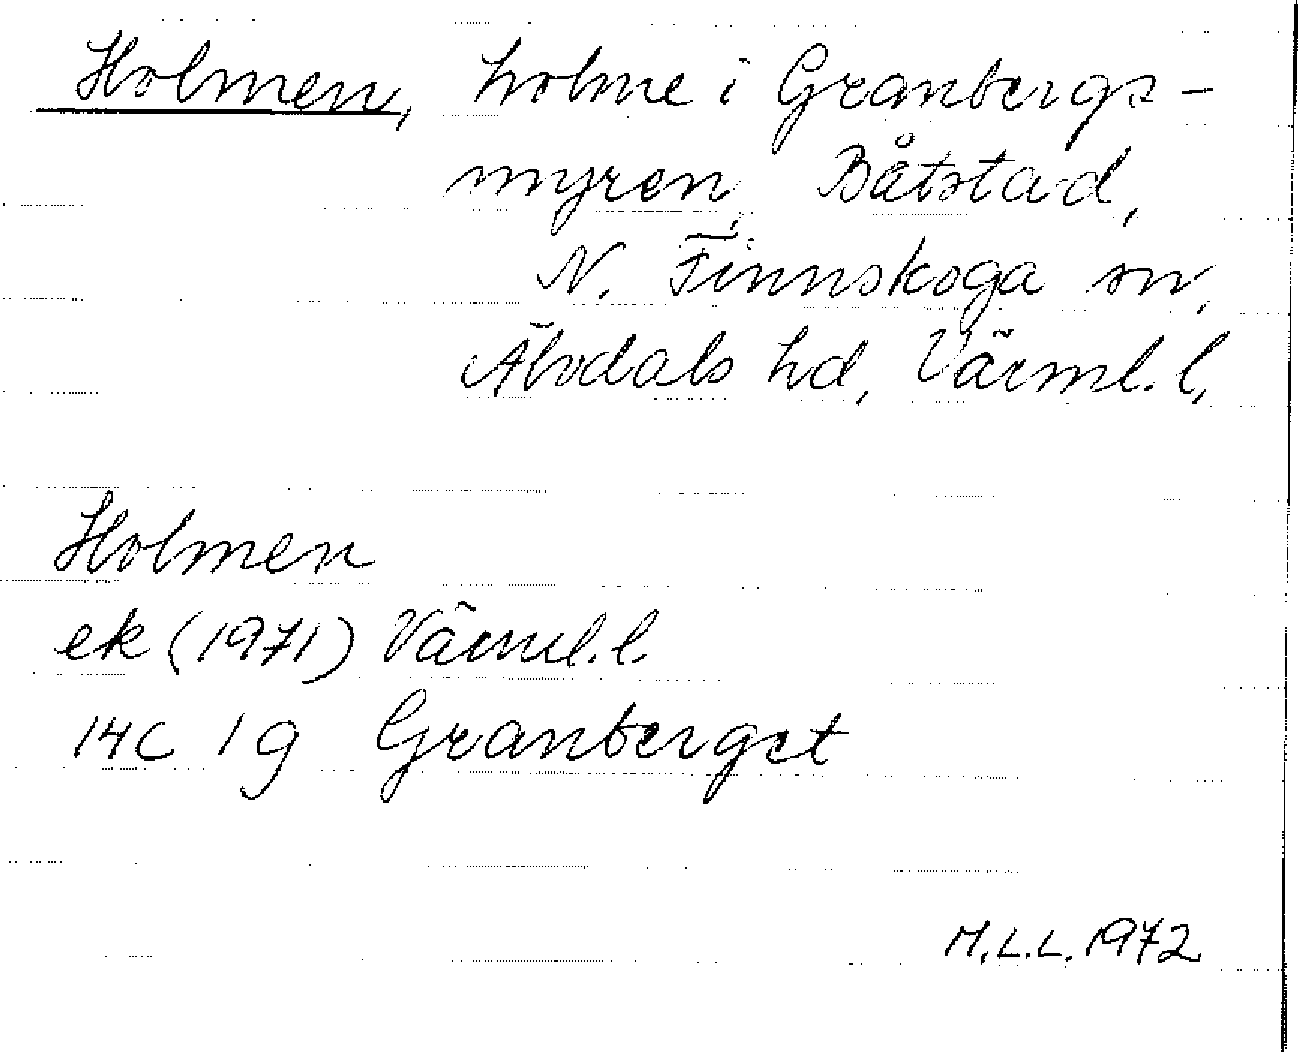 Holmen, holme i Granbergs-
myren, Båtstad,
N. Finnskoga sn,
Älvdals hd, Värml. l.
Holmen
ek (1971) Värml. l.
14C 1g Granberget
M.L.L. 1972